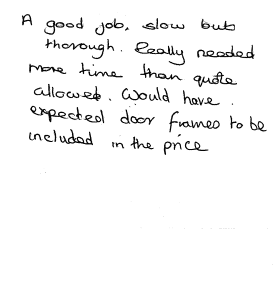 A good job, slow but
thorough. Really needed
more time than quote
allowed. Would have.
expected door frames to be
included in the price